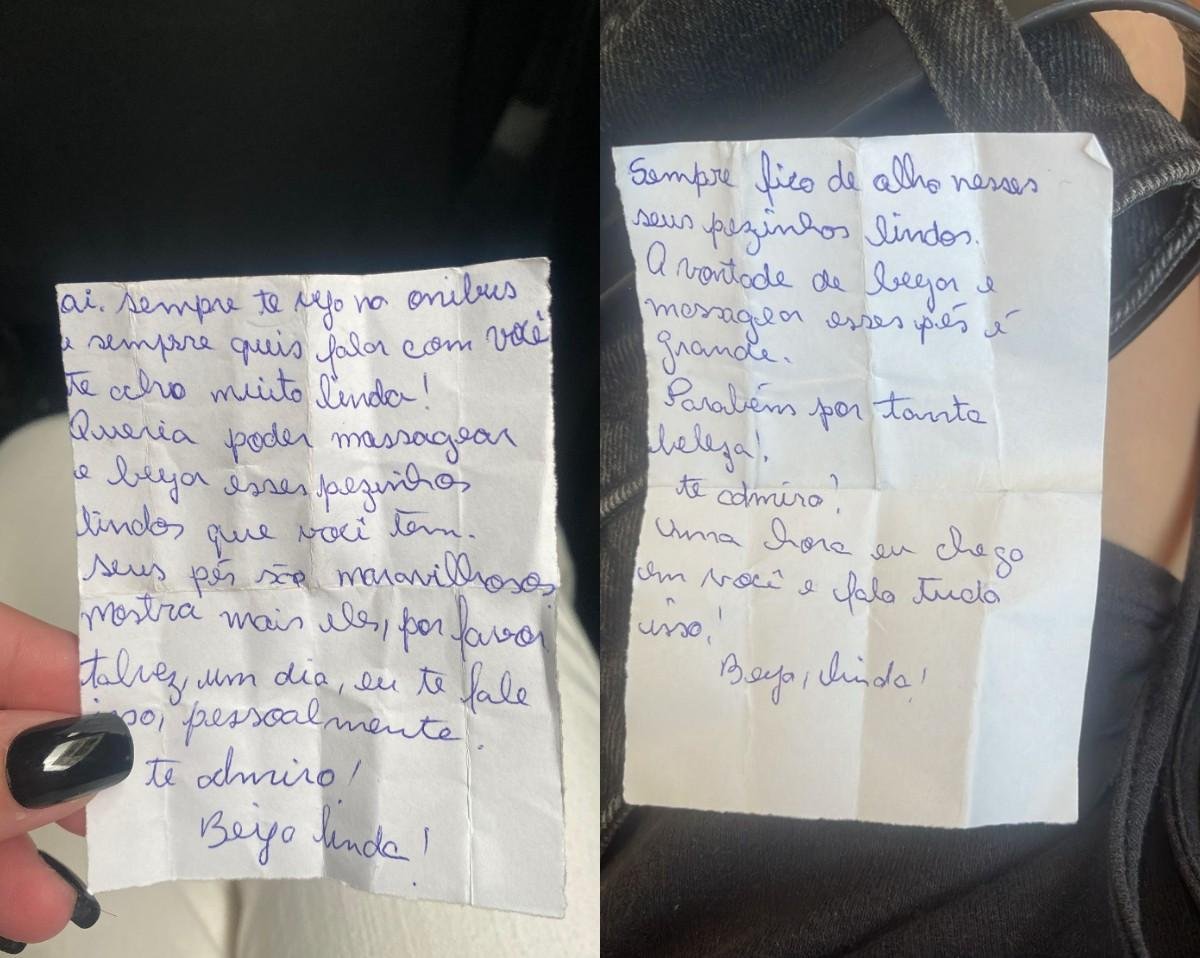 oi. sempre te vejo no onibus
e sempre quis falar com você
te acho muito linda!
Queria poder massagear
e beijar esses pezinhos
lindos que você tem.
seus pés são maravilhosos
mostra mais eles, por favor
talvez, um dia, eu te fale
isso, pessoalmente.
te admiro!
Beijo linda!
Sempre fico de olho nesses
seus pezinhos lindos.
A vontade de beijar e
massagear esses pés é
grande.
Parabéns por tanta
beleza!
te admiro!
Uma hora eu chego
em você e falo tudo
isso!
Beijo, linda!